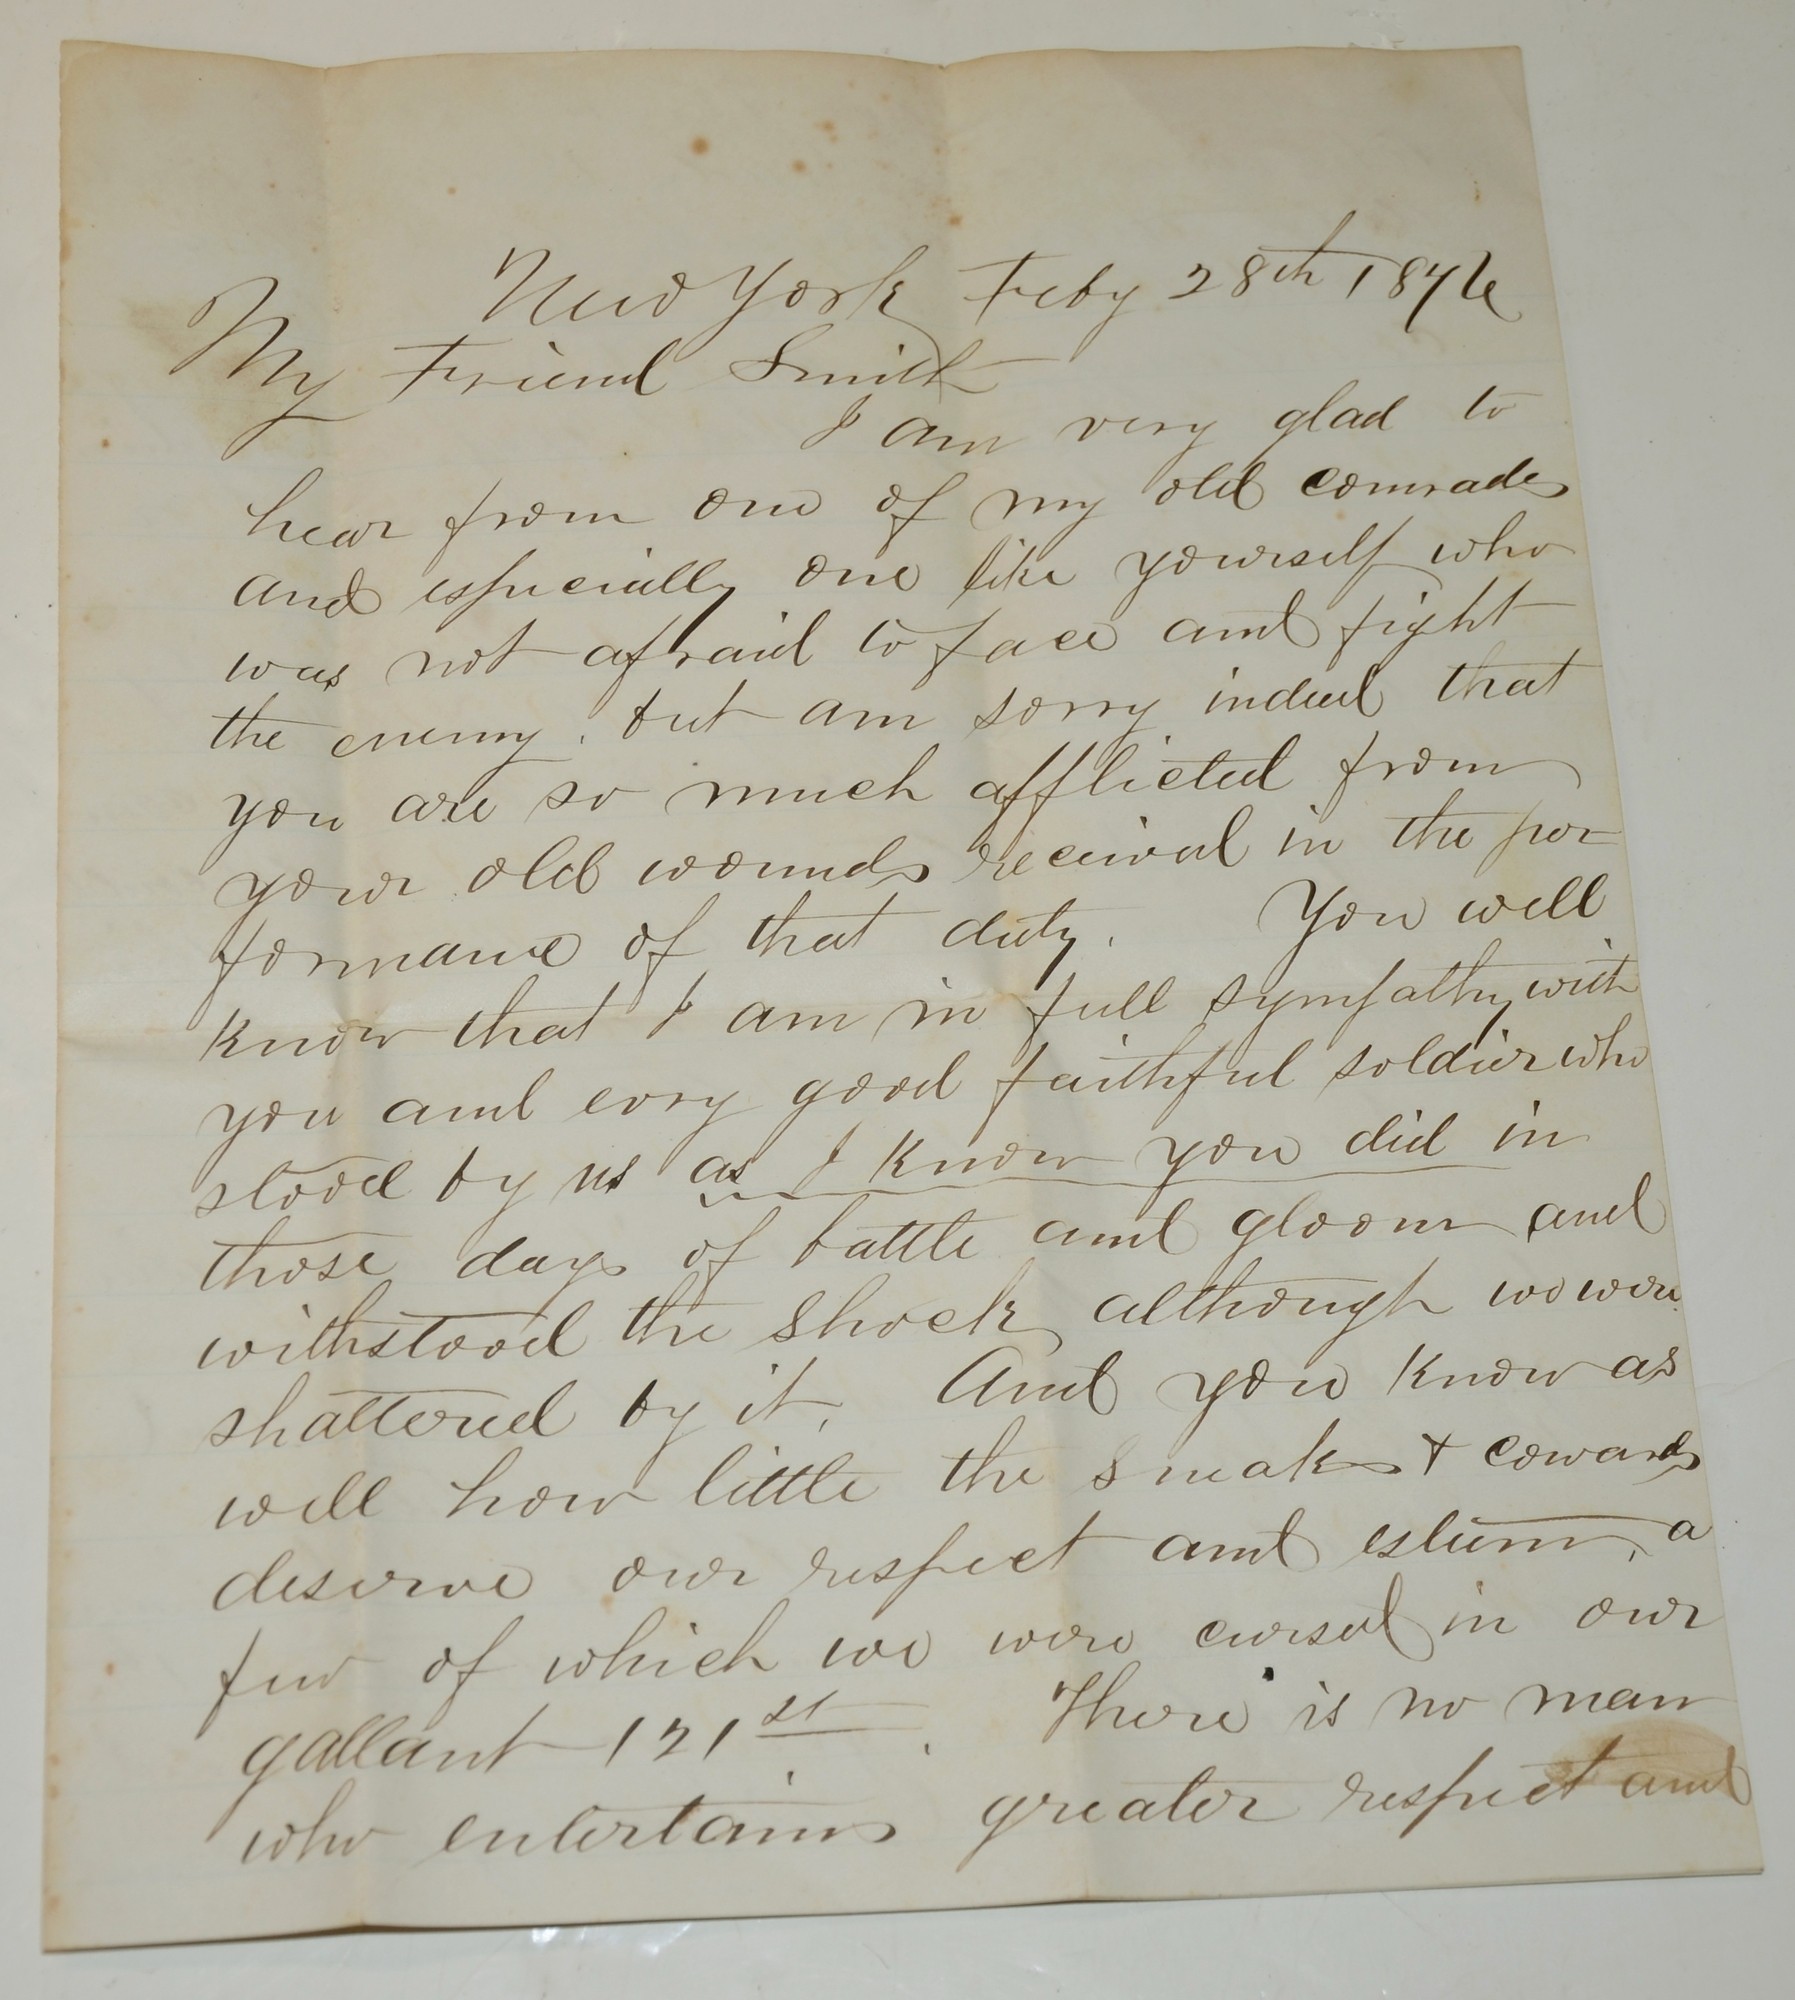 New York Feby 28th 1876
My Friend Smith
I am very glad to
hear from one of my old comrades
and especially one like yourself who
was not afraid to face and fight
the enemy. but am sorry indeed that
you are so much afflicted from
your old wounds received in the per
formance of that duty. You well
know that I am in full sympathy with
you and every good faithful soldier who
stood by us as I know you did in
those days of battle and gloom and
withstood the shock although we were
shattered by it. And you know as
well how little the sneaks & cowards
deserve our respect and esteem, a
few of which we were cursed in our
gallant 121st. There is no man
who entertains greater respect and